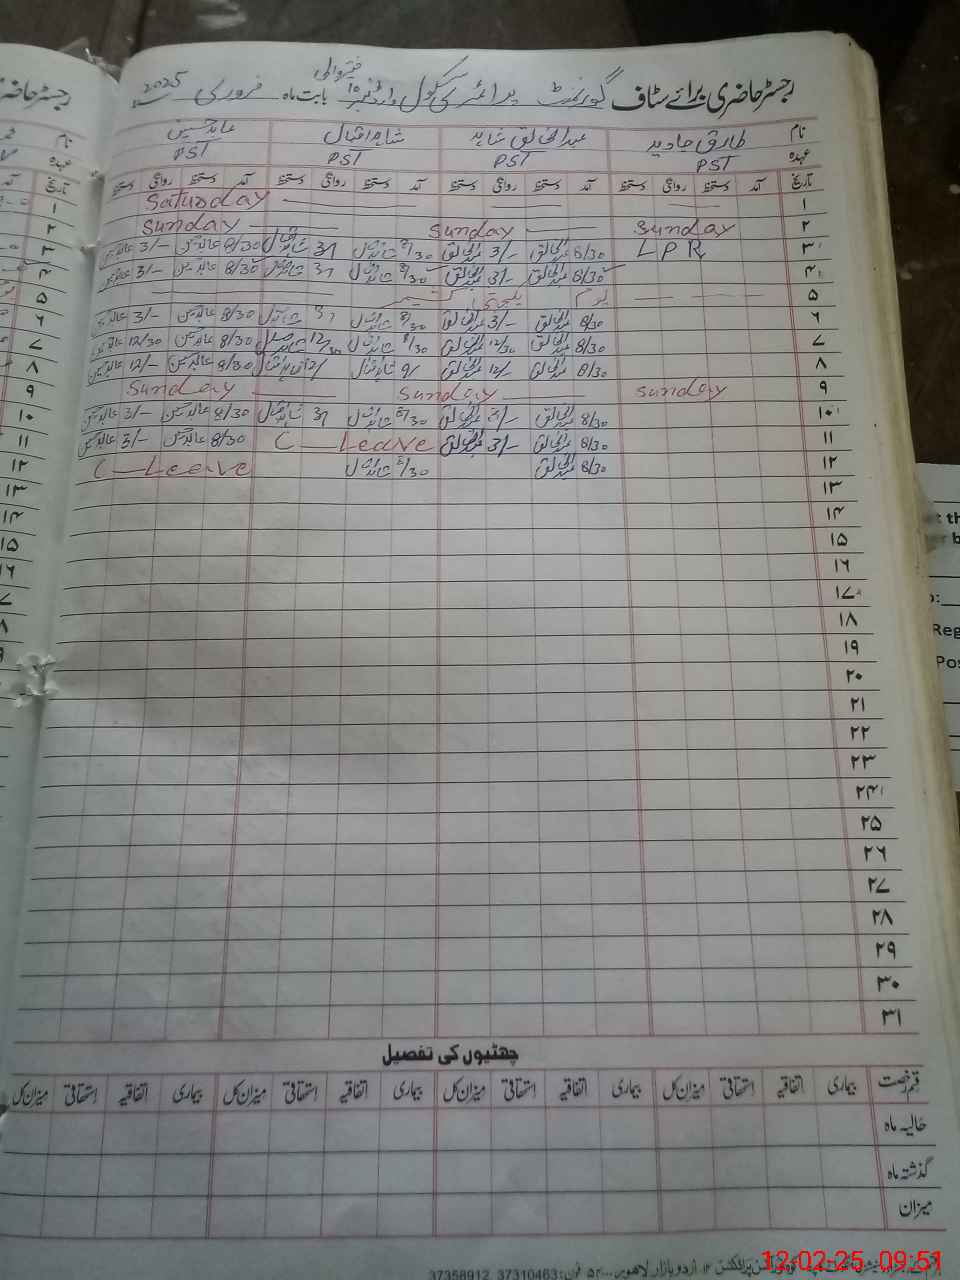 رجسٹر حاضری برائے سٹاف گورنمنٹ پرائمری سکول وارڈ نمبر ۱۵ بابت ماہ فروری 2025
نام طارق جاوید عبدالخالق شاہد شاہد اقبال عابد حسین
عہدہ PST PST PST PST
تاریخ آمد دستخط روانگی دستخط آمد دستخط روانگی دستخط آمد دستخط روانگی دستخط آمد دستخط روانگی دستخط
۱ Saturday
۲ Sunday Sunday Sunday
۳ L P R 8/30 عبدالخالق 3/- عبدالخالق 8/30 3/ 8/30 عابد حسین 3/- عابد حسین
۴ 8/30 عبدالخالق 3/- عبدالخالق 8/30 3/ 8/30 عابد حسین 3/- عابد حسین
۵ یوم یکجہتی کشمیر
۶ 8/30 عبدالخالق 3/- عبدالخالق 8/30 3/ 8/30 عابد حسین 3/- عابد حسین
۷ 8/30 عبدالخالق 12/30 عبدالخالق 8/30 12/30 8/30 عابد حسین 12/30 عابد حسین
۸ 8/30 عبدالخالق 12/- عبدالخالق 12/ 8/30 عابد حسین 12/- عابد حسین
۹ Sunday Sunday Sunday
۱۰ 8/30 عبدالخالق 3/- عبدالخالق 8/30 3/ 8/30 عابد حسین 3/- عابد حسین
۱۱ 8/30 عبدالخالق 3/- عبدالخالق C — Leave 8/30 عابد حسین 3/- عابد حسین
۱۲ 8/30 عبدالخالق 8/30 C — Leave
۱۳
۱۴
۱۵
۱۶
۱۷
۱۸
۱۹
۲۰
۲۱
۲۲
۲۳
۲۴
۲۵
۲۶
۲۷
۲۸
۲۹
۳۰
۳۱
چھٹیوں کی تفصیل
قسم رخصت بیماری اتفاقیہ استحقاقی میزان کل بیماری اتفاقیہ استحقاقی میزان کل بیماری اتفاقیہ استحقاقی میزان کل بیماری اتفاقیہ استحقاقی میزان کل
حالیہ ماہ
گذشتہ ماہ
میزان
اردو بازار لاہور فون: 37310463, 37358912
12-02-25 09:51